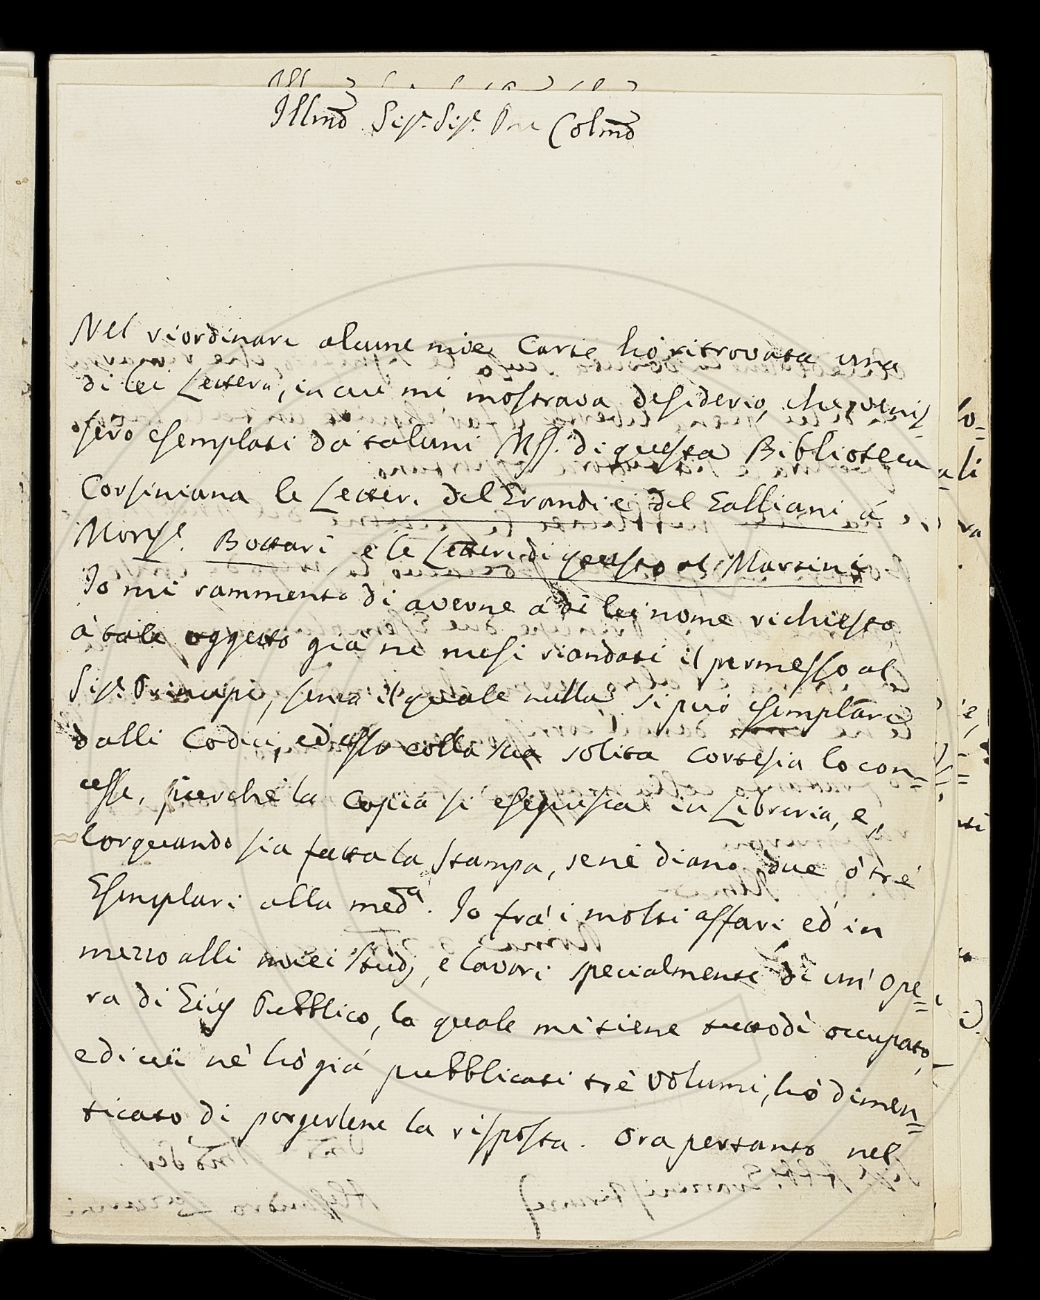 Illmo Sigr. Sigr. Pne Colmo
Nel riordinare alcune mie Carte hò ritrovata una
di lei Lettera, in cui mi mostrava desiderio, che venis=
sero esemplati da taluni Mss. di questa Biblioteca
Corsiniana le Lettere del Grandi e del Galliani á
Monsr. Bottari e le Lettere di questo al Martini
Io mi rammento di averne à di lei nome richiesto
à tale oggetto già ne mesi riandati il permesso al
Sigr. Principe, senza il quale nulla si può esemplare
dalli Codici, ed esso colla sua solita cortesia lo con=
cesse, purchè la Copia si eseguisca in Libraria, e,
lorquando sia fatta la Stampa, se ne diano due ò trè
Esemplari alla meda. Io frà i molti affari ed in
mezzo alli miei Studj, e lavori specialmente di un' Ope=
ra di Gius Pubblico, la quale mi tiene tuttodì occupato,
e di cui nè hò già pubblicati trè volumi, hò dimen=
ticato di porgerlene la risposta. Ora pertanto nel